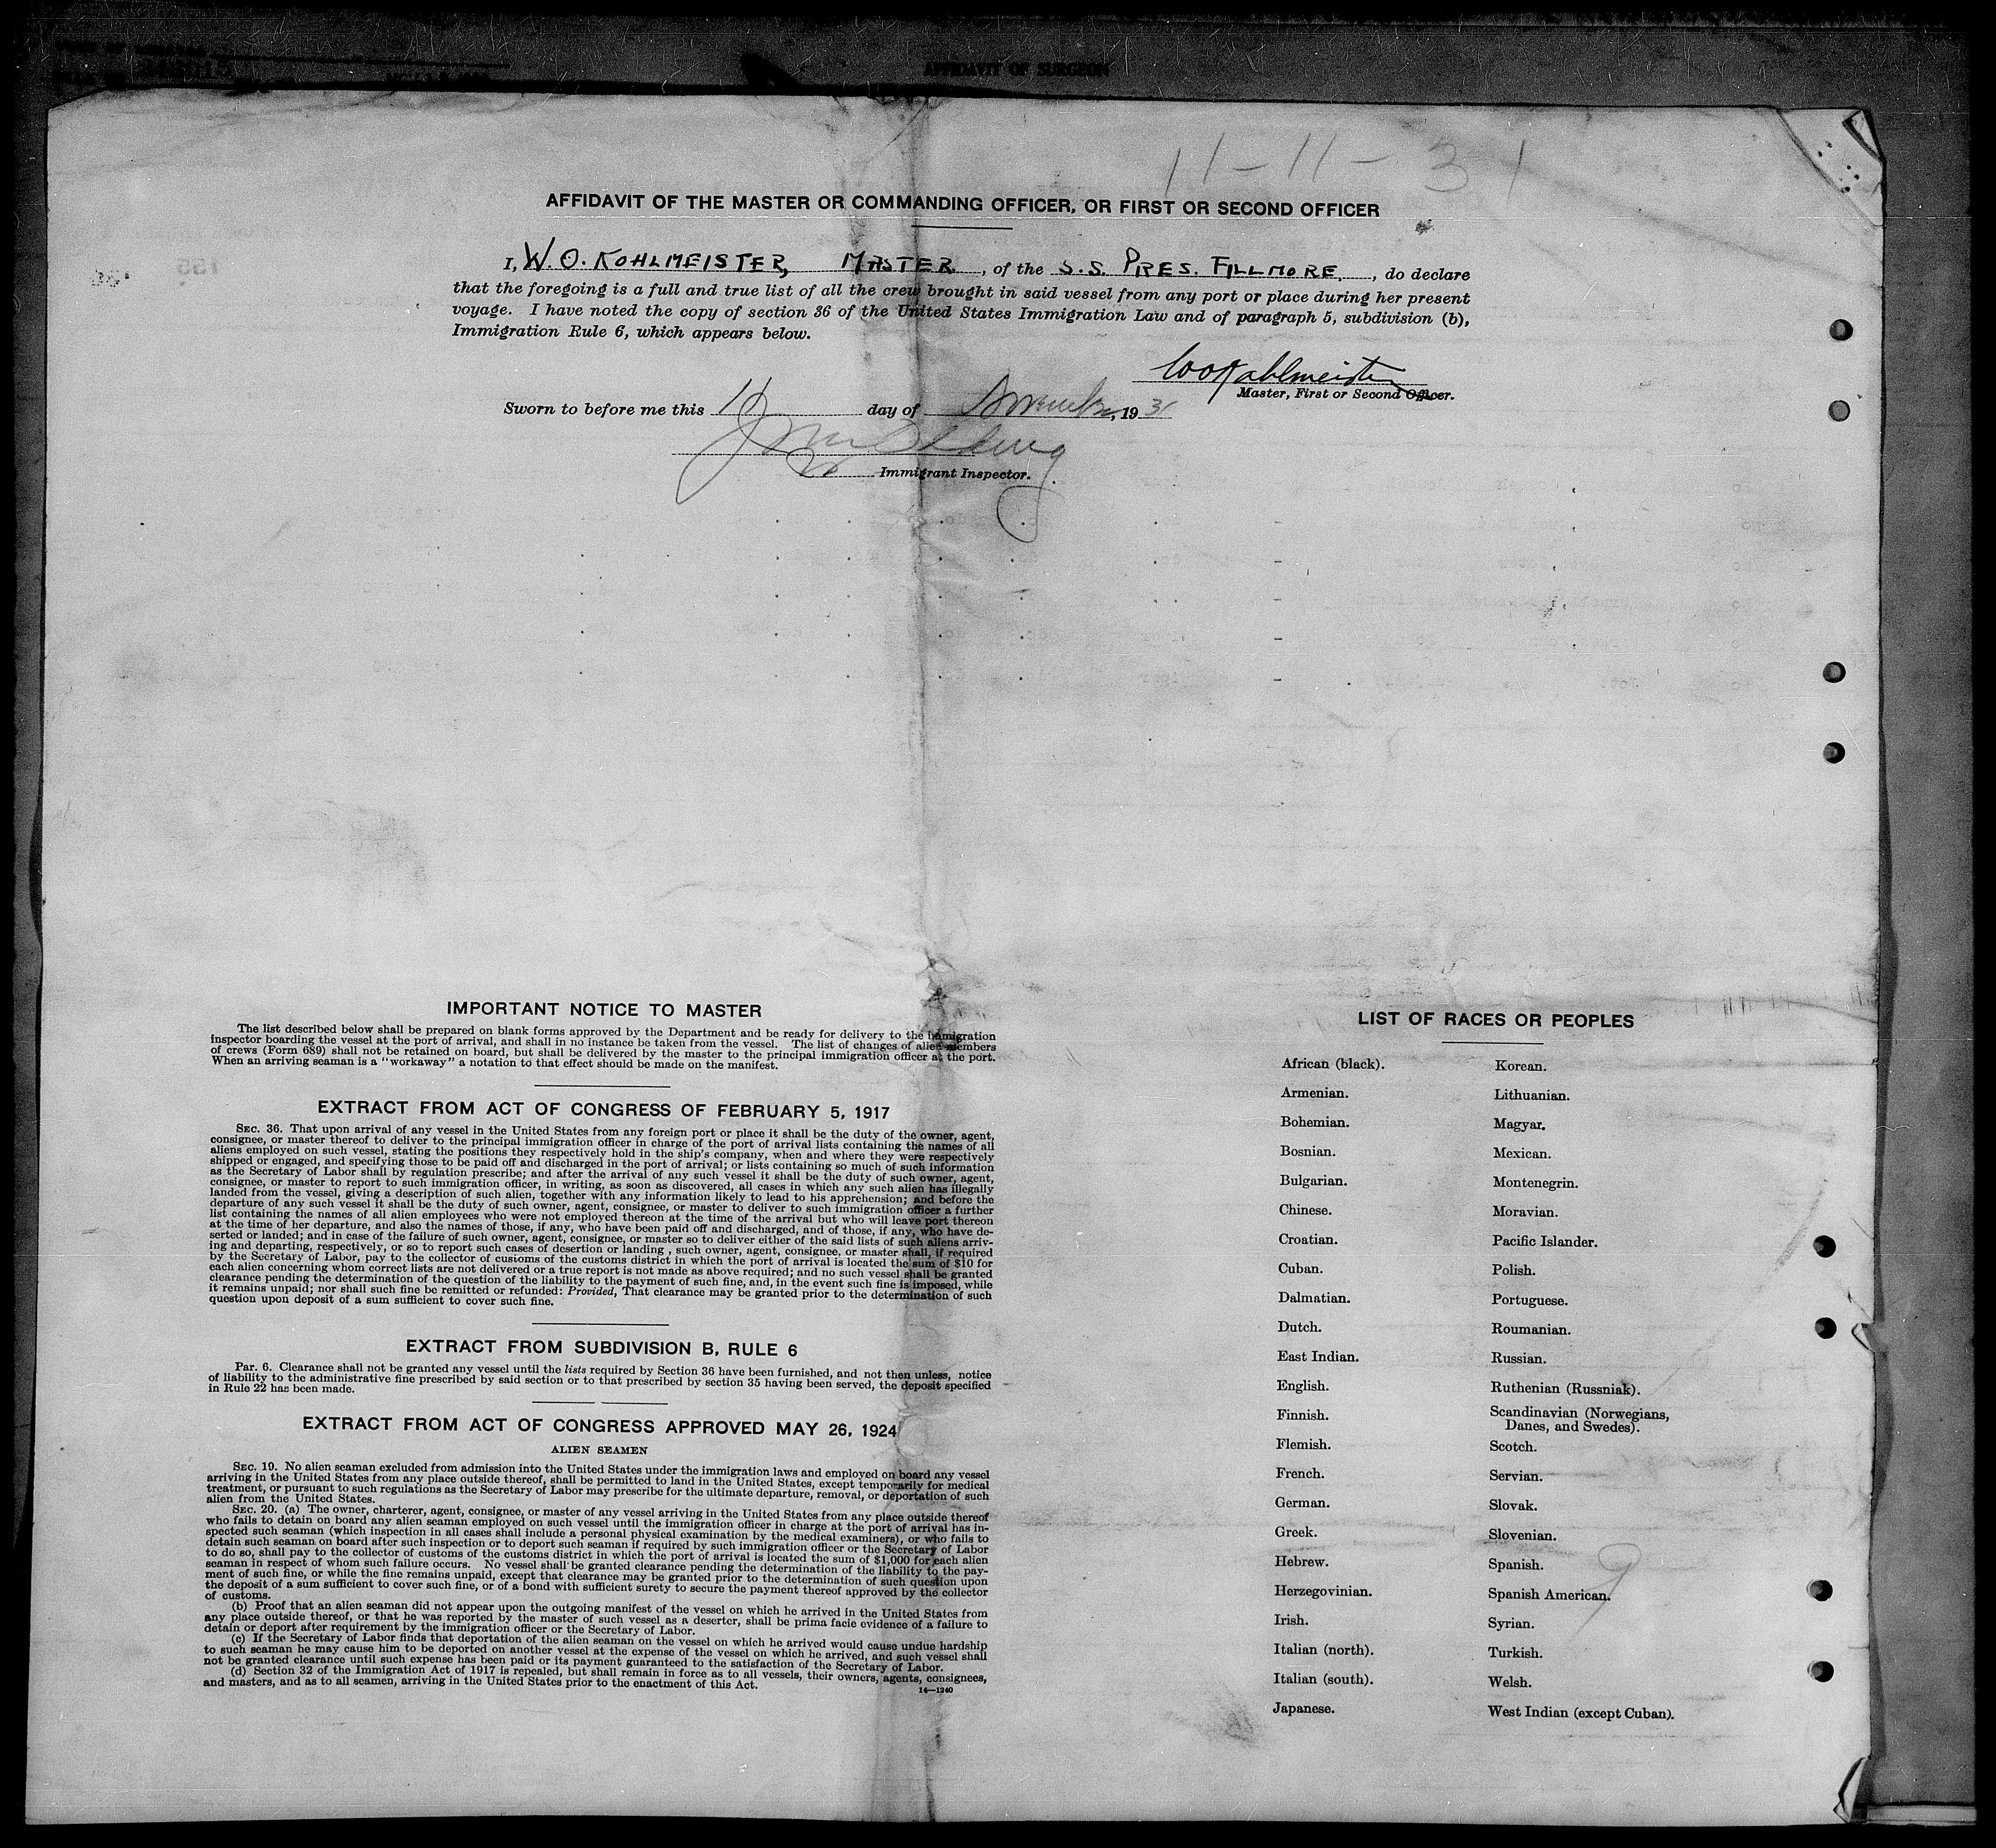 AFFIDAVIT OF SURGEON
11-11-31
AFFIDAVIT OF THE MASTER OR COMMANDING OFFICER, OR FIRST OR SECOND OFFICER
I, W. O. KOHLMEISTER, MASTER, of the S.S. PRES. FILLMORE, do declare
that the foregoing is a full and true list of all the crew brought in said vessel from any port or place during her present
voyage. I have noted the copy of section 36 of the United States Immigration Law and of paragraph 5, subdivision (b),
Immigration Rule 6, which appears below.
WO Kohlmeister
Master, First or Second Officer.
Sworn to before me this 11 day of November, 1931
Immigrant Inspector.
IMPORTANT NOTICE TO MASTER
The list described below shall be prepared on blank forms approved by the Department and be ready for delivery to the immigration
inspector boarding the vessel at the port of arrival, and shall in no instance be taken from the vessel. The list of changes of alien members
of crews (Form 689) shall not be retained on board, but shall be delivered by the master to the principal immigration officer at the port.
When an arriving seaman is a "workaway" a notation to that effect should be made on the manifest.
EXTRACT FROM ACT OF CONGRESS OF FEBRUARY 5, 1917
SEC. 36. That upon arrival of any vessel in the United States from any foreign port or place it shall be the duty of the owner, agent,
consignee, or master thereof to deliver to the principal immigration officer in charge of the port of arrival lists containing the names of all
aliens employed on such vessel, stating the positions they respectively hold in the ship's company, when and where they were respectively
shipped or engaged, and specifying those to be paid off and discharged in the port of arrival; or lists containing so much of such information
as the Secretary of Labor shall by regulation prescribe; and after the arrival of any such vessel it shall be the duty of such owner, agent,
consignee, or master to report to such immigration officer, in writing, as soon as discovered, all cases in which any such alien has illegally
landed from the vessel, giving a description of such alien, together with any information likely to lead to his apprehension; and before the
departure of any such vessel it shall be the duty of such owner, agent, consignee, or master to deliver to such immigration officer a further
list containing the names of all alien employees who were not employed thereon at the time of the arrival but who will leave port thereon
at the time of her departure, and also the names of those, if any, who have been paid off and discharged, and of those, if any, who have de-
serted or landed; and in case of the failure of such owner, agent, consignee, or master so to deliver either of the said lists of such aliens arriv-
ing and departing, respectively, or so to report such cases of desertion or landing , such owner, agent, consignee, or master shall, if required
by the Secretary of Labor, pay to the collector of customs of the customs district in which the port of arrival is located the sum of $10 for
each alien concerning whom correct lists are not delivered or a true report is not made as above required; and no such vessel shall be granted
clearance pending the determination of the question of the liability to the payment of such fine, and, in the event such fine is imposed, while
it remains unpaid; nor shall such fine be remitted or refunded: Provided, That clearance may be granted prior to the determination of such
question upon deposit of a sum sufficient to cover such fine.
EXTRACT FROM SUBDIVISION B, RULE 6
Par. 6. Clearance shall not be granted any vessel until the lists required by Section 36 have been furnished, and not then unless, notice
of liability to the administrative fine prescribed by said section or to that prescribed by section 35 having been served, the deposit specified
in Rule 22 has been made.
EXTRACT FROM ACT OF CONGRESS APPROVED MAY 26, 1924
ALIEN SEAMEN
SEC. 19. No alien seaman excluded from admission into the United States under the immigration laws and employed on board any vessel
arriving in the United States from any place outside thereof, shall be permitted to land in the United States, except temporarily for medical
treatment, or pursuant to such regulations as the Secretary of Labor may prescribe for the ultimate departure, removal, or deportation of such
alien from the United States.
SEC. 20. (a) The owner, charterer, agent, consignee, or master of any vessel arriving in the United States from any place outside thereof
who fails to detain on board any alien seaman employed on such vessel until the immigration officer in charge at the port of arrival has in-
spected such seaman (which inspection in all cases shall include a personal physical examination by the medical examiners), or who fails to
detain such seaman on board after such inspection or to deport such seaman if required by such immigration officer or the Secretary of Labor
to do so, shall pay to the collector of customs of the customs district in which the port of arrival is located the sum of $1,000 for each alien
seaman in respect of whom such failure occurs. No vessel shall be granted clearance pending the determination of the liability to the pay-
ment of such fine, or while the fine remains unpaid, except that clearance may be granted prior to the determination of such question upon
the deposit of a sum sufficient to cover such fine, or of a bond with sufficient surety to secure the payment thereof approved by the collector
of customs.
(b) Proof that an alien seaman did not appear upon the outgoing manifest of the vessel on which he arrived in the United States from
any place outside thereof, or that he was reported by the master of such vessel as a deserter, shall be prima facie evidence of a failure to
detain or deport after requirement by the immigration officer or the Secretary of Labor.
(c) If the Secretary of Labor finds that deportation of the alien seaman on the vessel on which he arrived would cause undue hardship
to such seaman he may cause him to be deported on another vessel at the expense of the vessel on which he arrived, and such vessel shall
not be granted clearance until such expense has been paid or its payment guaranteed to the satisfaction of the Secretary of Labor.
(d) Section 32 of the Immigration Act of 1917 is repealed, but shall remain in force as to all vessels, their owners, agents, consignees,
and masters, and as to all seamen, arriving in the United States prior to the enactment of this Act.
14—1240
LIST OF RACES OR PEOPLES
African (black). Korean.
Armenian. Lithuanian.
Bohemian. Magyar.
Bosnian. Mexican.
Bulgarian. Montenegrin.
Chinese. Moravian.
Croatian. Pacific Islander.
Cuban. Polish.
Dalmatian. Portuguese.
Dutch. Roumanian.
East Indian. Russian.
English. Ruthenian (Russniak).
Finnish. Scandinavian (Norwegians,
Danes, and Swedes).
Flemish. Scotch.
French. Servian.
German. Slovak.
Greek. Slovenian.
Hebrew. Spanish.
Herzegovinian. Spanish American.
Irish. Syrian.
Italian (north). Turkish.
Italian (south). Welsh.
Japanese. West Indian (except Cuban).
9